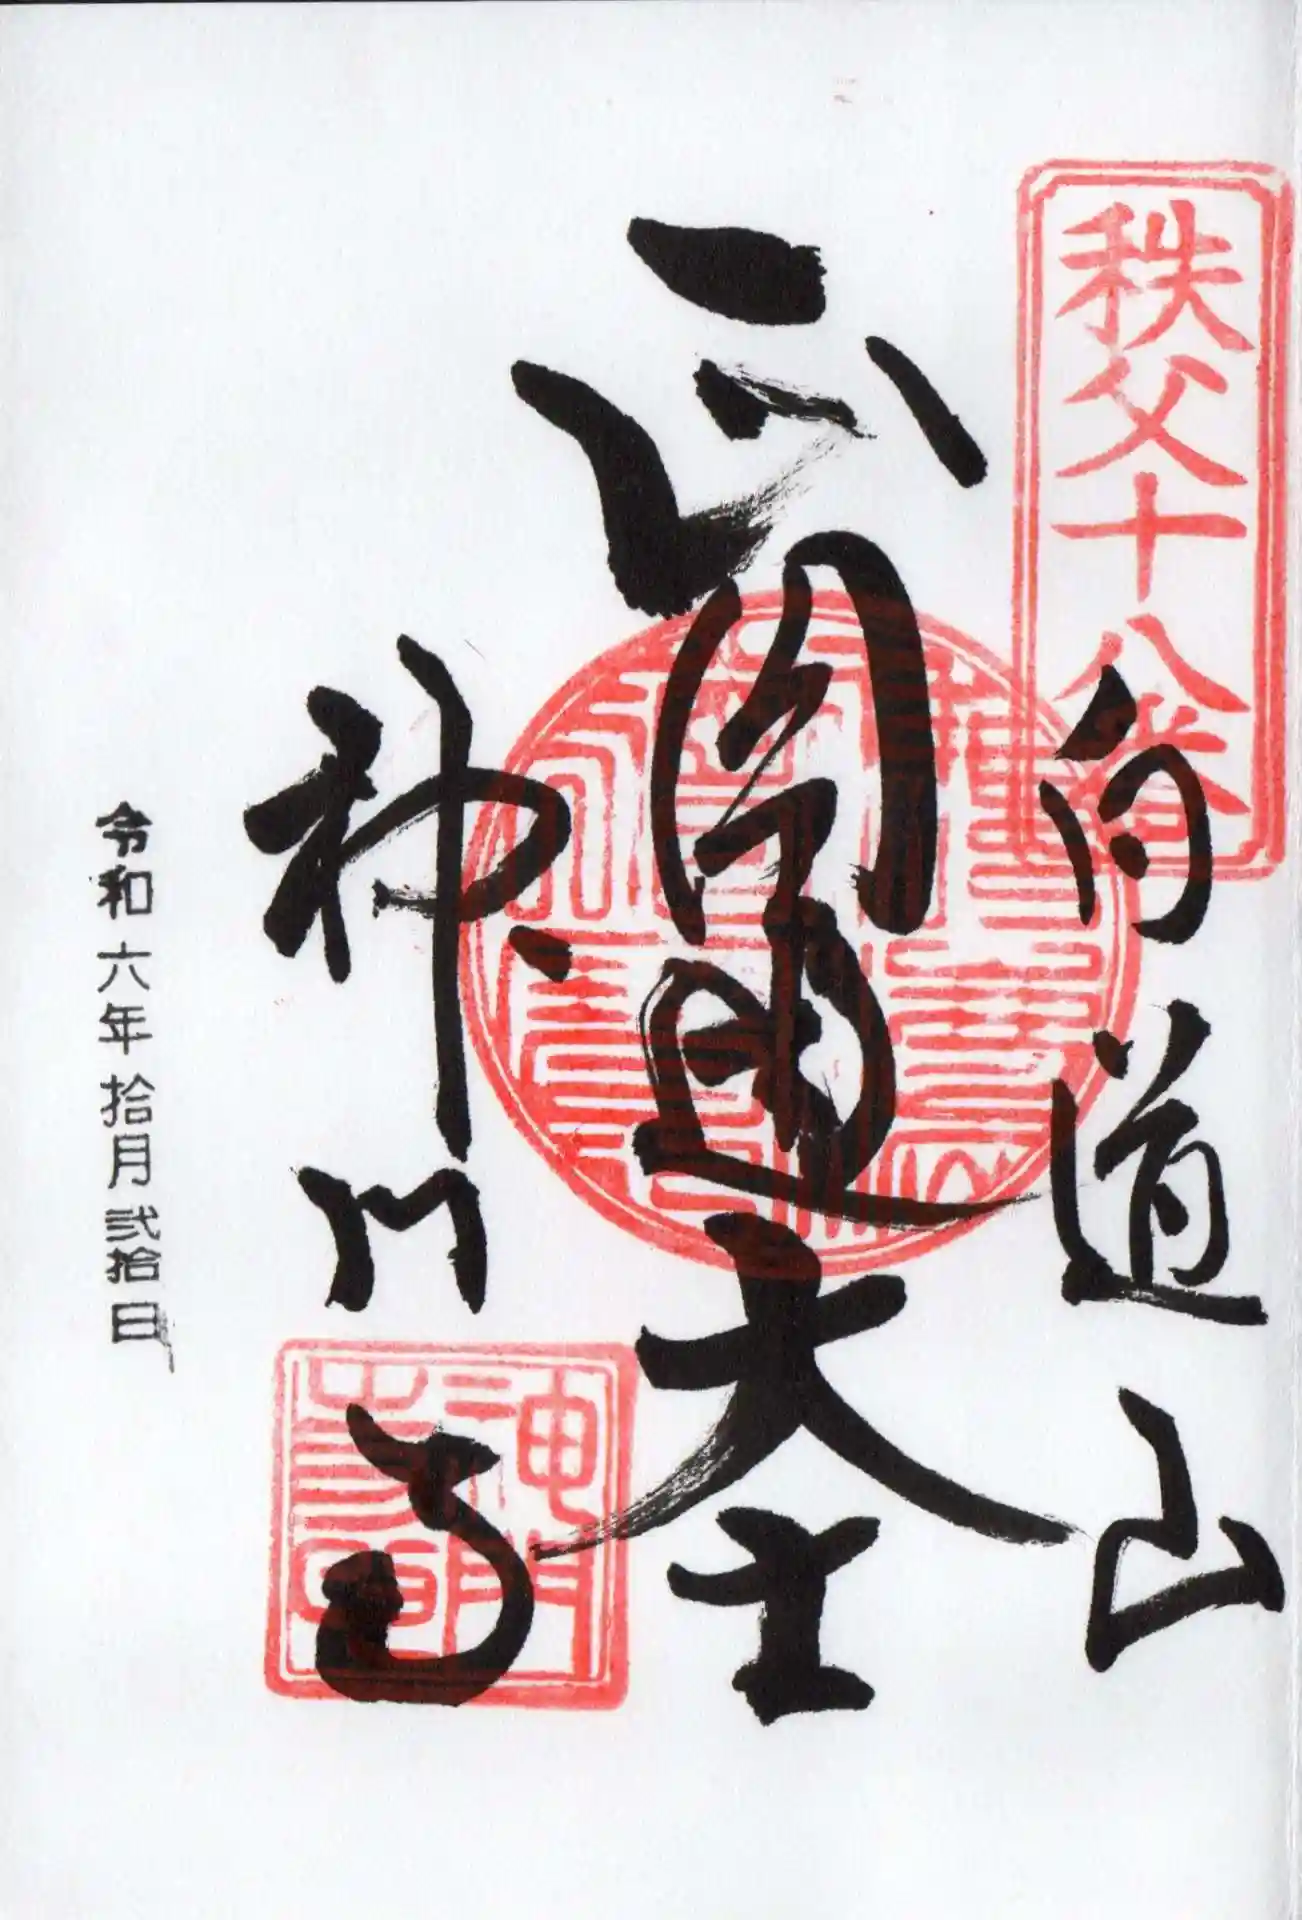 秩父十八番
白道山
圓通大士
神門寺
令和六年拾月弐拾日